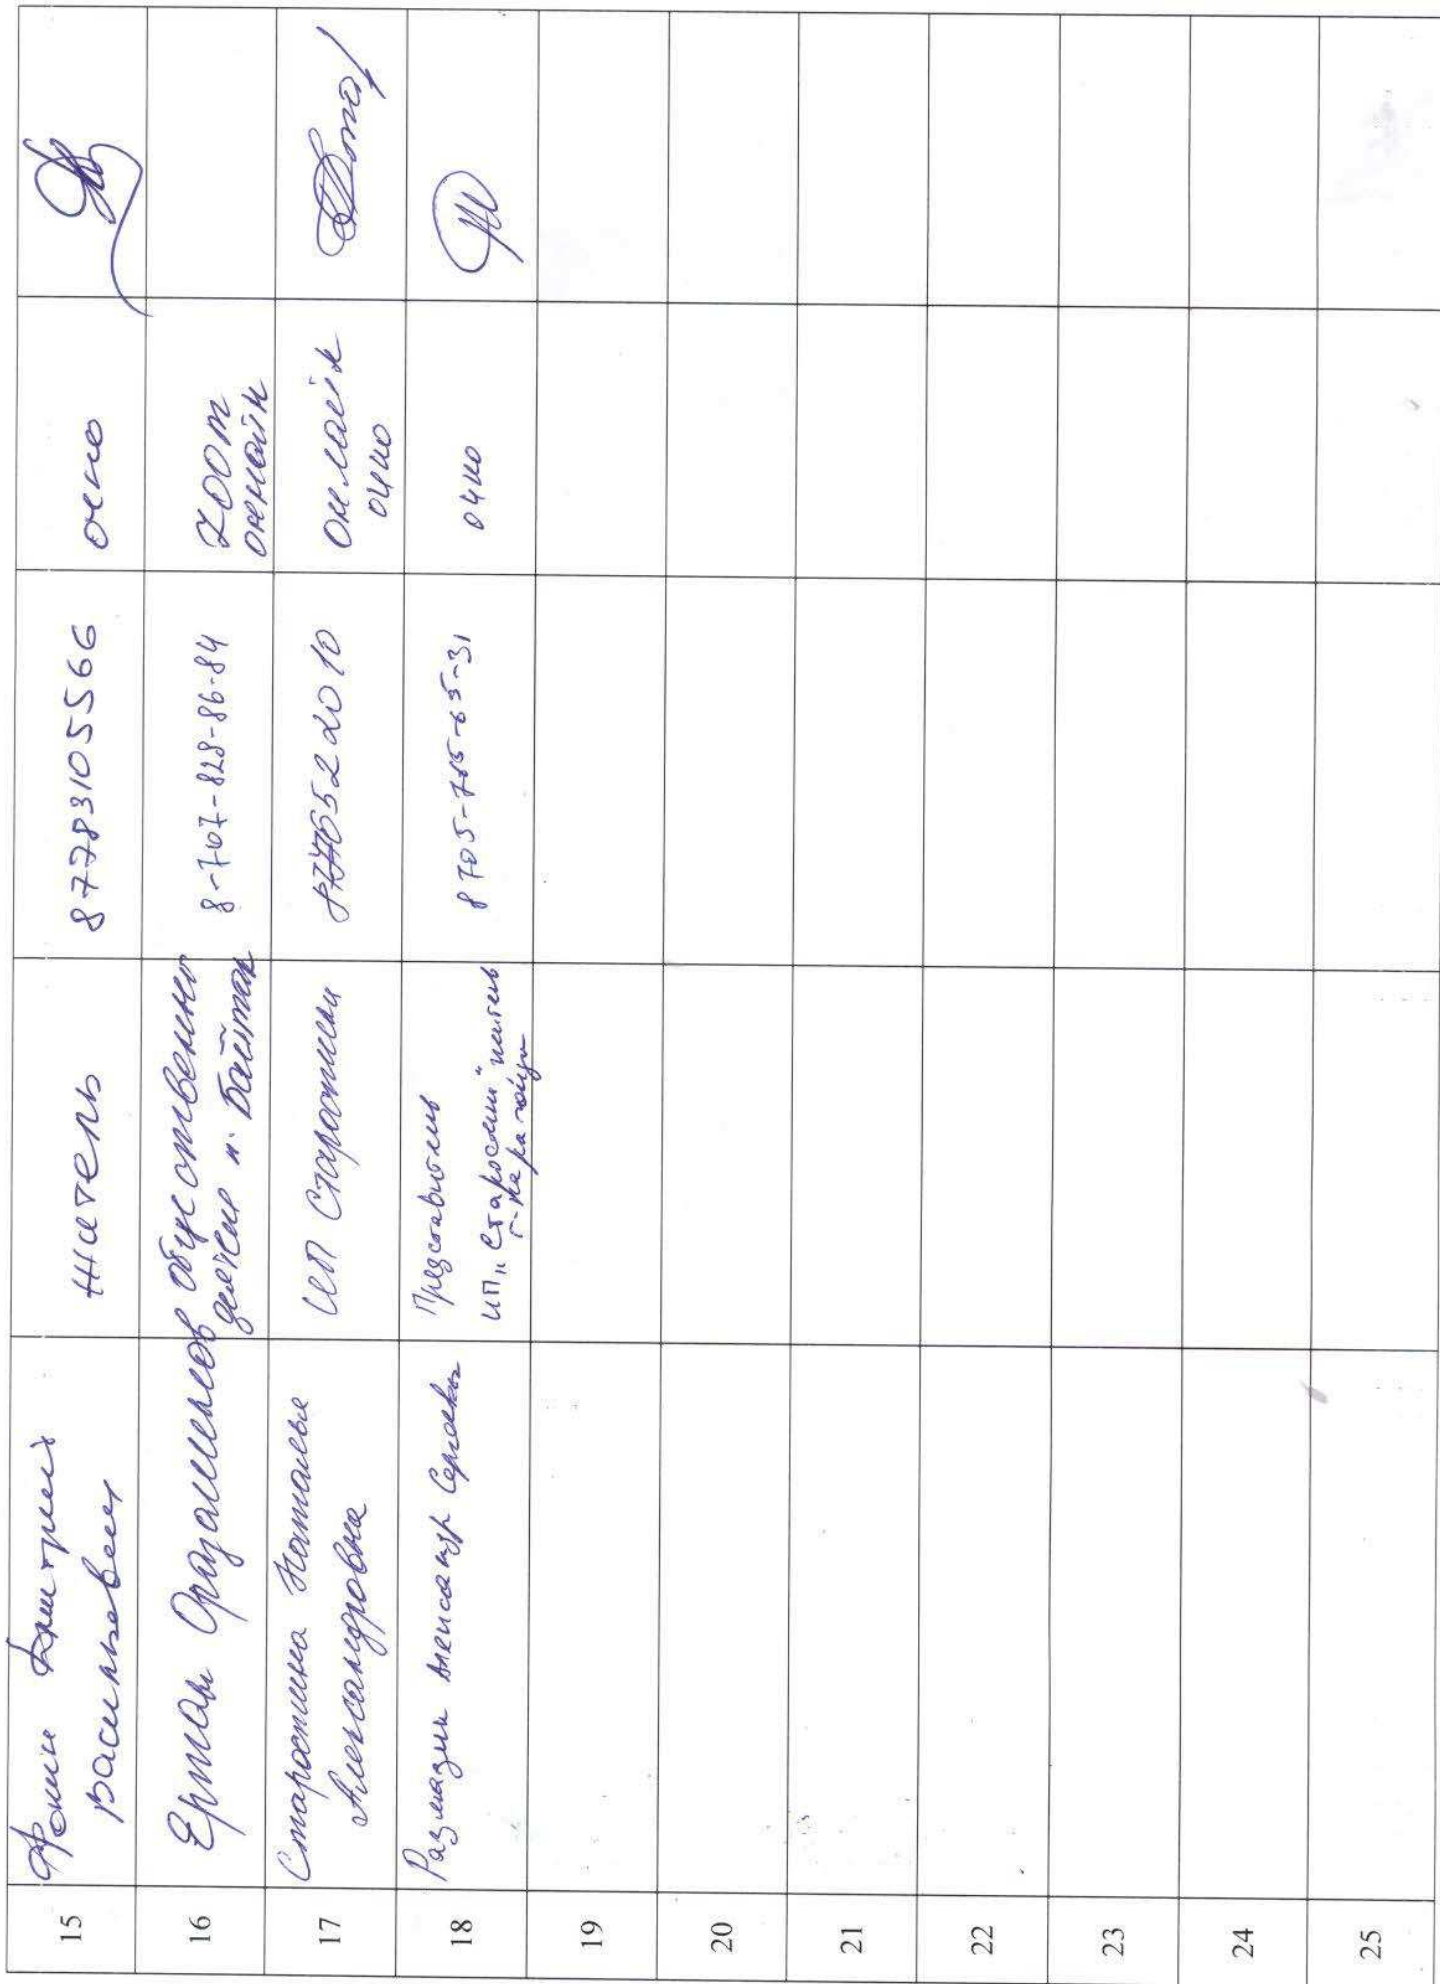 15
Фокин Дмитрий
Васильевич
житель
87783105566
очно
16
Ерлан Оразалинов
Обущественно
деятель
Байтак
8-707-828-86-84
ZOOM
онлайн
17
Старостина Наталья
Александровна
ИП Старостин
87765522010
Онлайн
очно
18
Александр Сергеевич
Представитель
ИП „Старостин" житель
г-Караганды
очно
19
20
21
22
23
24
25